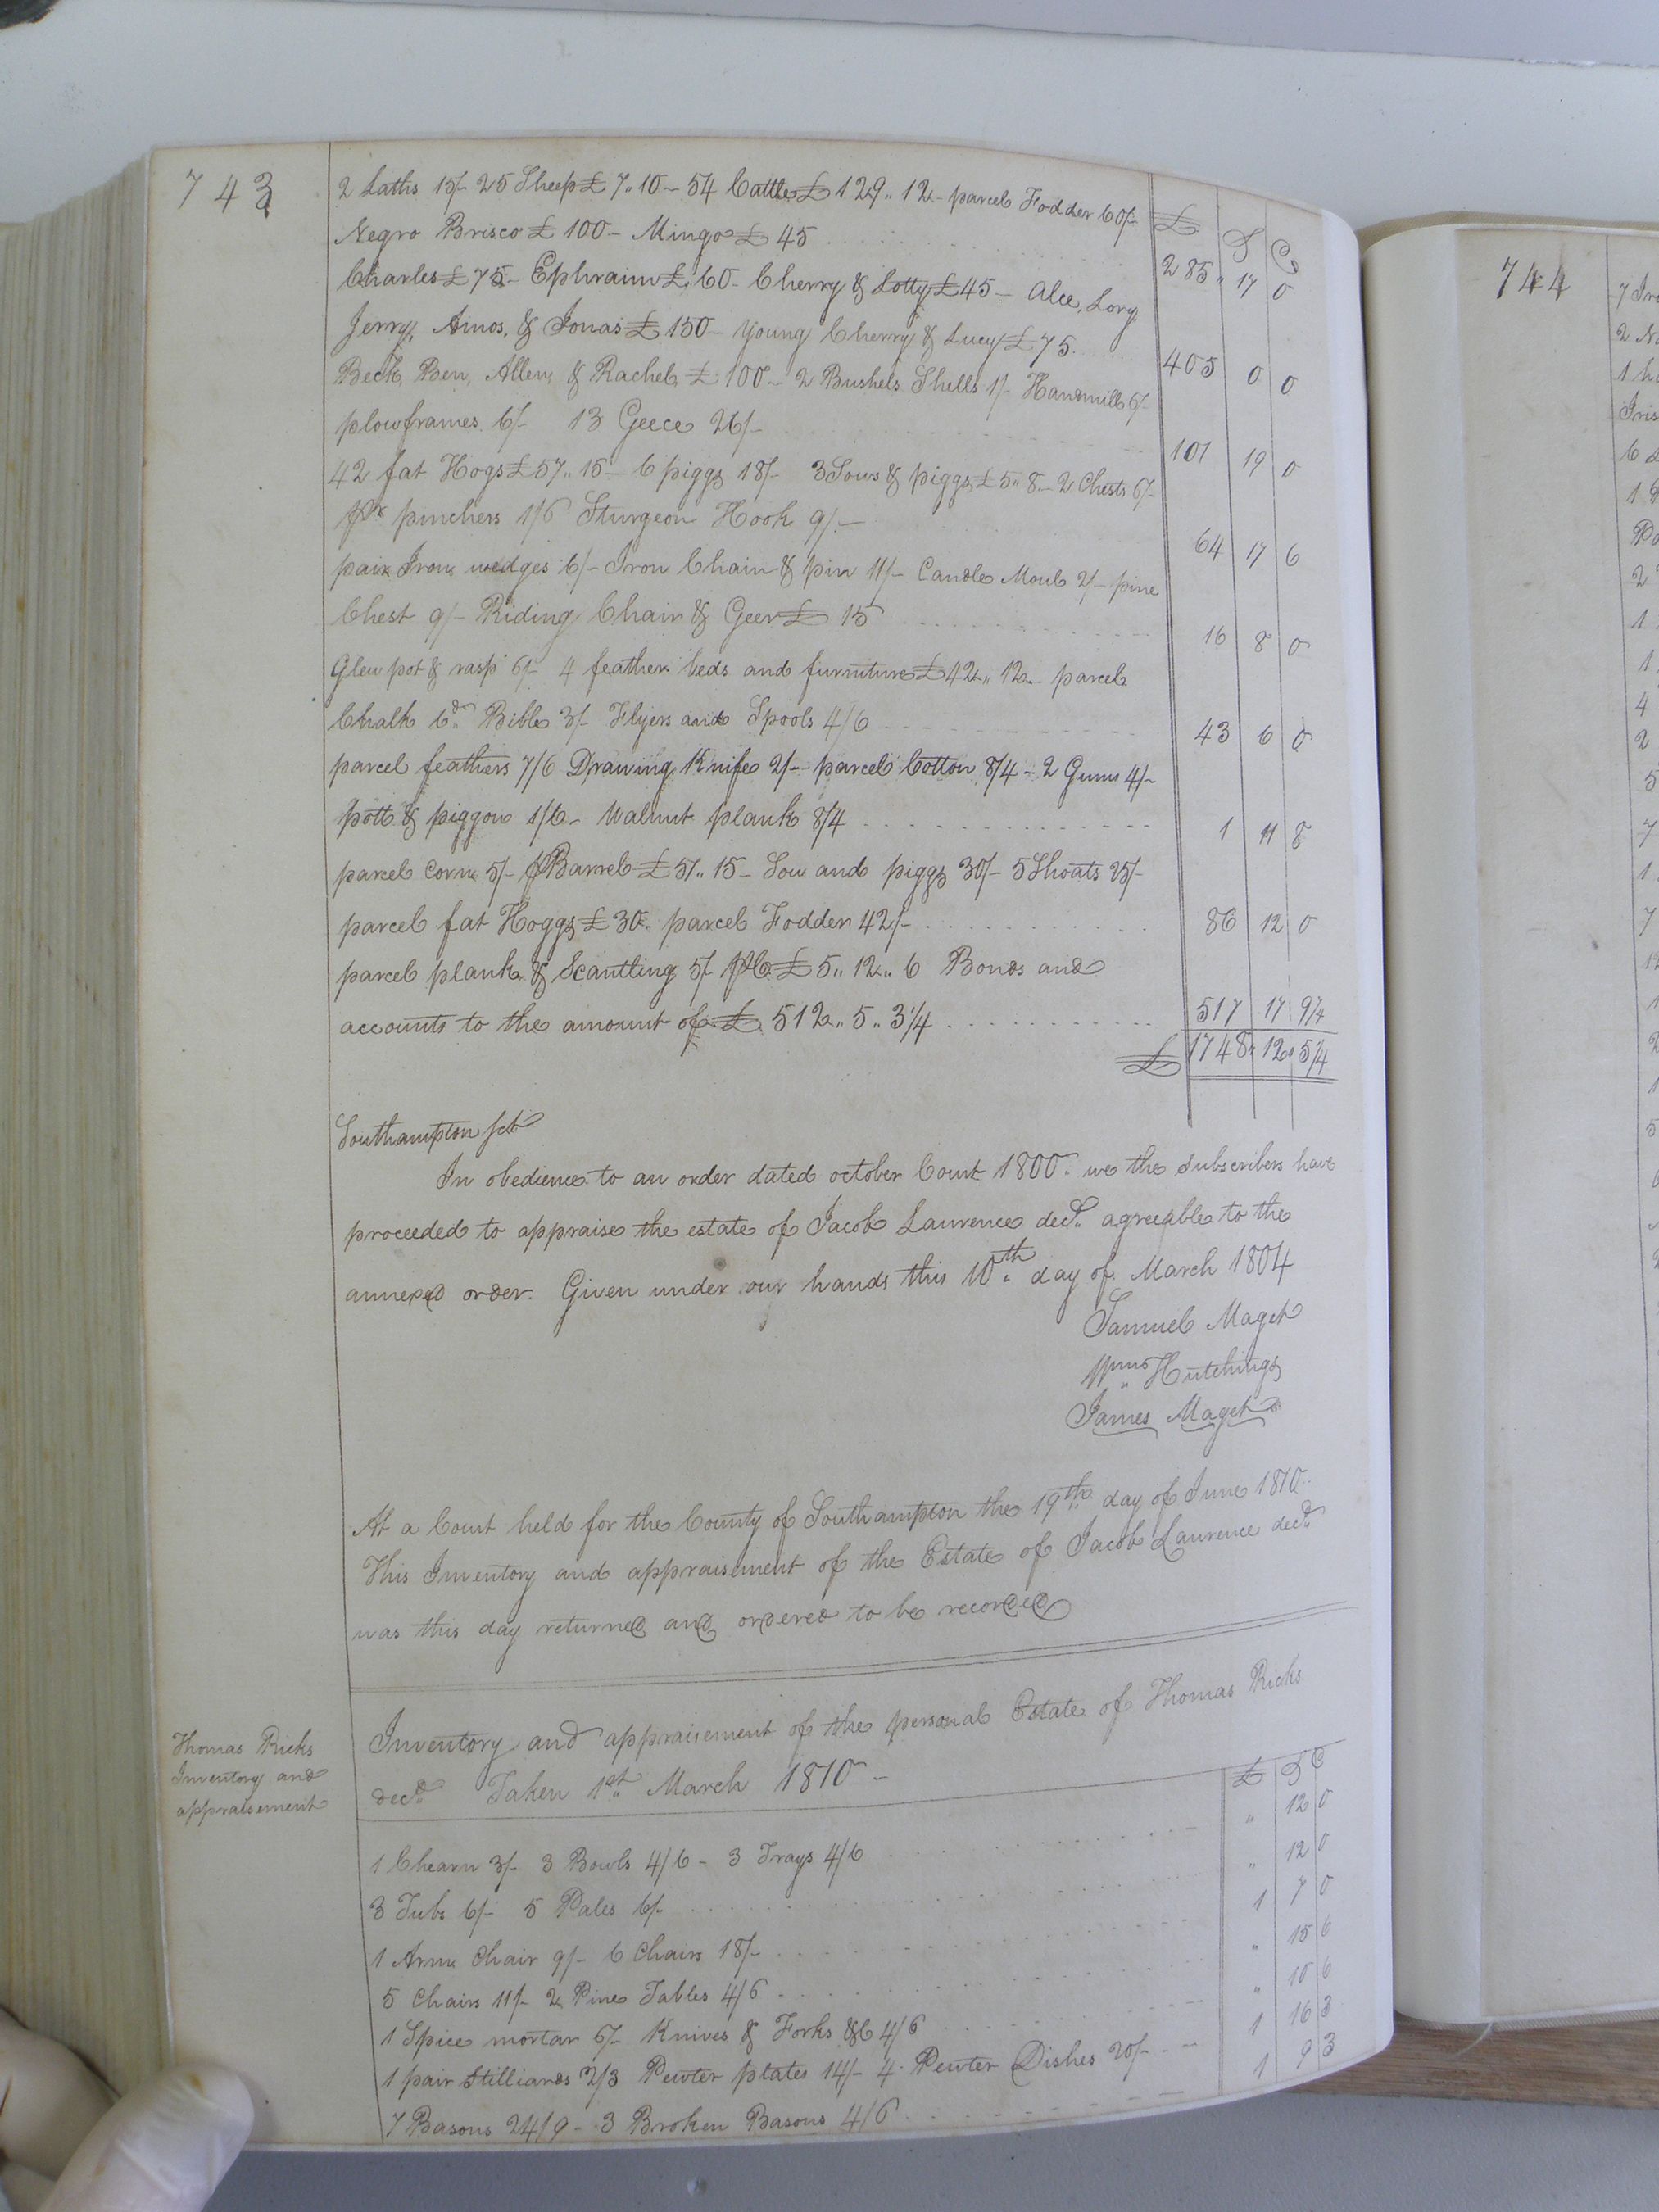 743
2 Laths 15/- 25 Sheep £ 7,, 10 - 54 Cattle £ 129,, 12 - parcel Fodder 60/-
£ S D
Negro Brisco £ 100 - Mingo £ 45 285,, 17 0
Charles £ 75 - Ephraim £ 60 - Cherry & Lotty £ 45 - Alce, Lory
Jerry, Amos, & Jonas £ 150 - Young Cherry & Lucy £ 75 405 0 0
Beck, Ben, Allen, & Rachel £ 100 - 2 Bushels Shells 1/- Handmill 6/-
plowframes 6/- 13 Geece 26/- 101 19 0
42 fat Hogs £ 57,, 15 - 6 piggs 18/- 3 Sows & piggs £ 5,, 8 - 2 Chests 6/-
pr pinchers 1/6 Sturgeon Hook 9/- 64 17 6
pair Iron wedges 6/- Iron Chain & pin 11/- Candle Moul 2/- pine
Chest 9/- Riding Chair & Geer £ 15 16 8 0
Gleu pot & rasp 6/- 4 feather beds and furniture £ 42,, 12 - parcel
Chalk 6d Bible 3/- Flyers and Spools 4/6 43 6 0
parcel feathers 7/6 Drawing Knife 2/- parcel Cotton 8/4 - 2 Gums 4/-
pott & piggon 1/6 - Walnut plank 8/4 1 11 8
parcel Corn 5/- p Barrel £ 51,, 15 - Sow and piggs 30/- 5 Shoats 25/-
parcel fat Hoggs £ 30 - parcel Fodder 42/- 86 12 0
parcel plank & Scantling 5/- £ 5,, 12,, 6 Bonds and
accounts to the amount of £ 512,, 5,, 3 1/4 517 17 9 1/4
£ 1748,, 12,, 5 1/4
Southampton sct
In obedience to an order dated october Court 1800. we the subscribers have
proceeded to appraise the estate of Jacob Laurence decd. agreeable to the
annexed order. Given under our hands this 10th day of March 1804
Samuel Maget
Wm Hutchings
James Maget
At a Court held for the County of Southampton the 19th day of June 1810
This Inventory and appraisement of the Estate of Jacob Laurence decd
was this day returned and ordered to be recorded
Thomas Ricks
Inventory and
appraisement
Inventory and appraisement of the personal Estate of Thomas Ricks
decd Taken 1st March 1810 -
£ S D
1 Chearn 3/- 3 Bowls 4/6 - 3 Trays 4/6 ,, 12 0
3 Tubs 6/- 5 Pales 6/- ,, 12 0
1 Arm Chair 9/- 6 Chairs 18/- 1 7 0
5 Chairs 11/- 2 Pine Tables 4/6 ,, 15 6
1 Spice mortar 6/- Knives & Forks &C 4/6 ,, 10 6
1 pair Stilliards 2/3 Pewter plates 14/- 4 Pewter Dishes 20/- 1 16 3
7 Basons 24/9 - 3 Broken Basons 4/6 1 9 3
744
7
2
1
6
1
2
1
1
4
2
5
7
1
7